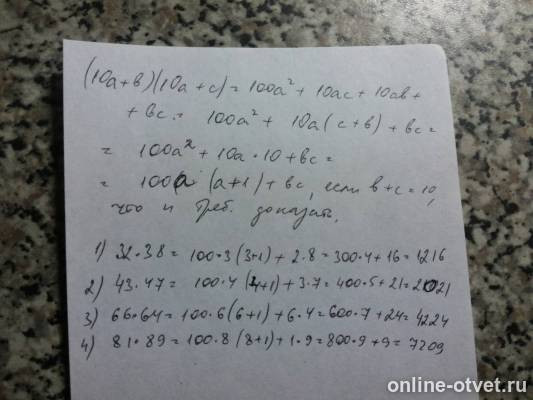 (10а+в)(10а+с)=100а²+10ас+10ав+
+вс= 100а²+10а(с+в)+вс=
= 100а²+10а·10+вс=
= 100а(а+1)+вс, если в+с=10,
что и треб. доказать.
1) 32·38=100·3(3+1)+2·8=300·4+16=1216
2) 43·47= 100·4(4+1)+3·7=400·5+21=2021
3) 66·64=100·6(6+1)+6·4=600·7+24=4224
4) 81·89=100·8(8+1)+1·9=800·9+9=7209
online-otvet.ru